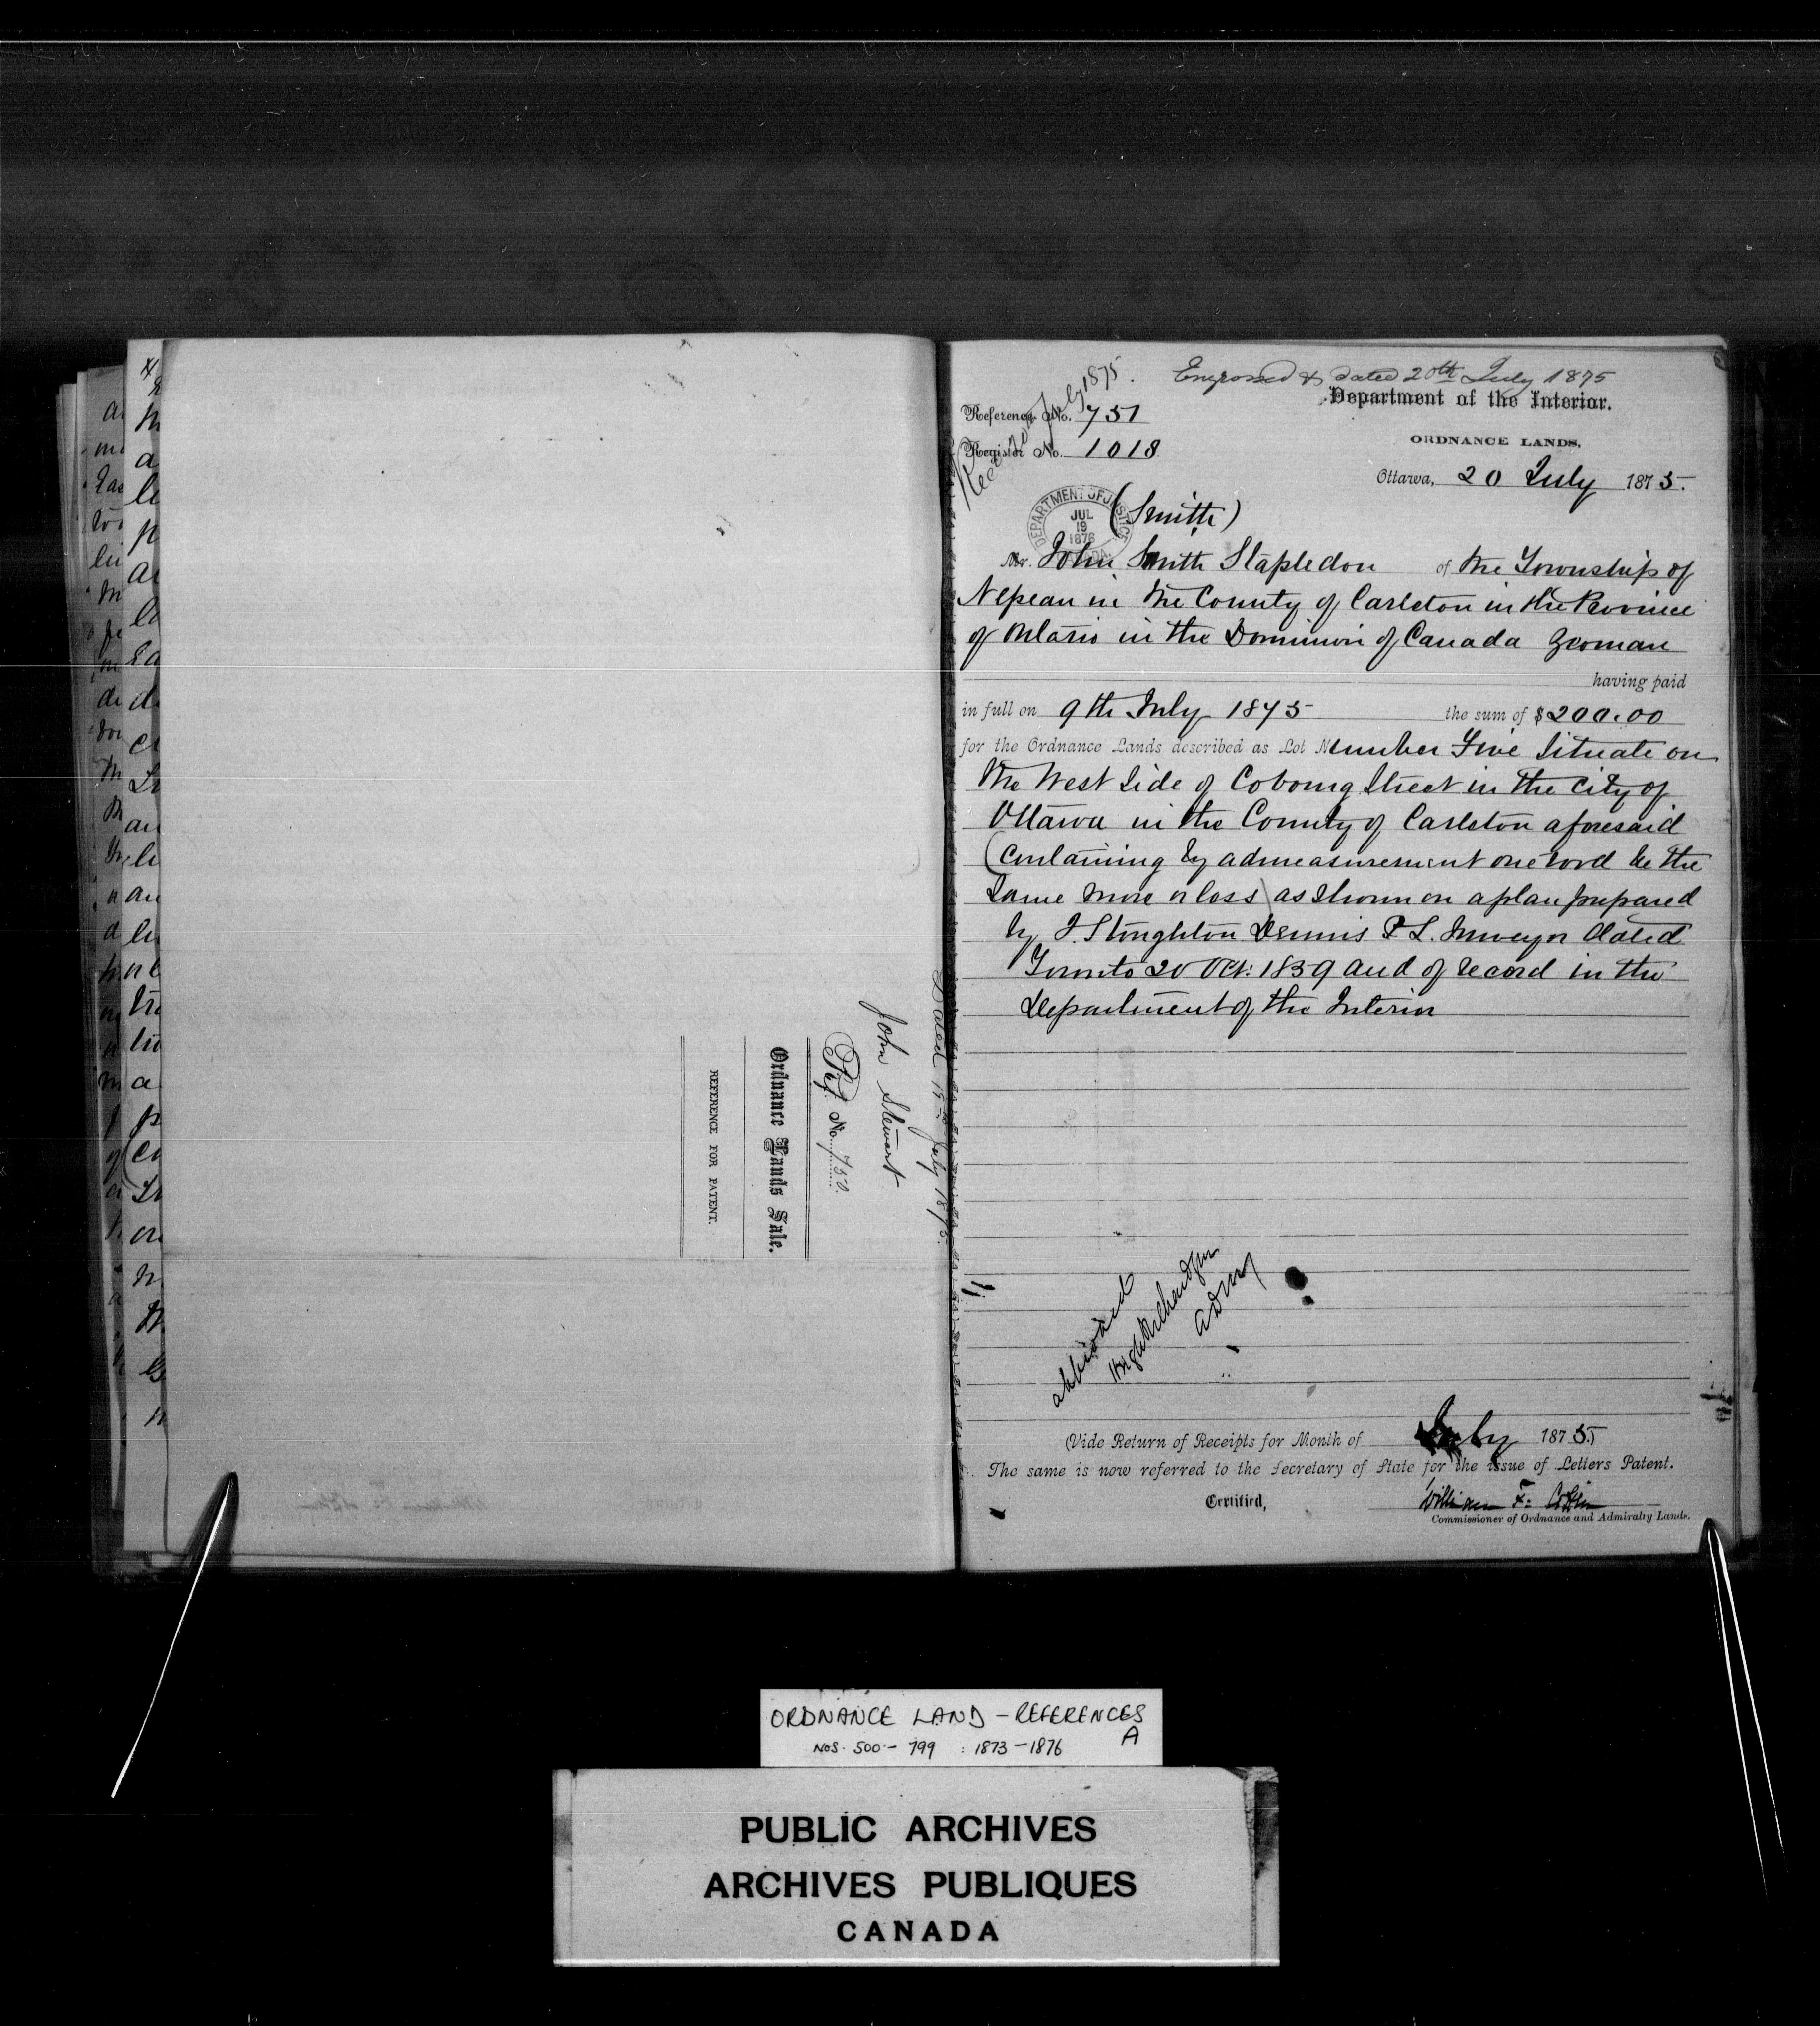 Dated 15th July 1875.
John Stewart
Ref. No. 750.
Ordnance Lands Sale.
REFERENCE FOR PATENT.
Engrossed & dated 20th July 1875
July 1875.
Department of the Interior.
Reference No. 751
ORDNANCE LANDS,
Register No. 1018
Ottawa, 20 July 1875.
DEPARTMENT OF JUSTICE
JUL
19
1876
(Smith)
Mr. John Smith Stapledon of the Township of
Nepean in the County of Carleton in the Province
of Ontario in the Dominion of Canada Yeoman
having paid
in full on 9th July 1875 the sum of $200.00
for the Ordnance Lands described as Lot Number Five Situate on
the West Side of Cobourg Street in the City of
Ottawa in the County of Carleton aforesaid
(Containing by admeasurement one rood be the
Same more or less) as shown on a plan prepared
by J. Stoughton Dennis P L. Surveyor dated
Toronto 20 Oct: 1859 and of record in the
Department of the Interior
Hugh Richardson
(Vide Return of Receipts for Month of July 1875.)
The same is now referred to the Secretary of State for the issue of Letters Patent.
Certified,
William F. Coffin
Commissioner of Ordnance and Admiralty Lands.
ORDNANCE LAND - REFERENCES
NOS. 500 - 799 : 1873 - 1876 A
PUBLIC ARCHIVES
ARCHIVES PUBLIQUES
CANADA